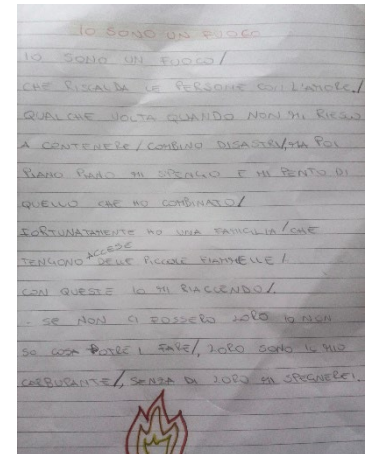 IO SONO UN FUOCO
IO SONO UN FUOCO/
CHE RISCALDA LE PERSONE CON L'AMORE./
QUALCHE VOLTA QUANDO NON MI RIESCO
A CONTENERE/COMBINO DISASTRI/MA POI
PIANO PIANO MI SPENGO E MI PENTO DI
QUELLO CHE HO COMBINATO/
FORTUNATAMENTE HO UNA FAMIGLIA/CHE
TENGONO ACCESE DELLE PICCOLE FIAMMELLE/
CON QUESTE IO MI RIACCENDO/.
SE NON CI FOSSERO LORO IO NON
SO COSA POTREI FARE/, LORO SONO IL MIO
CARBURANTE/, SENZA DI LORO MI SPEGNEREI.